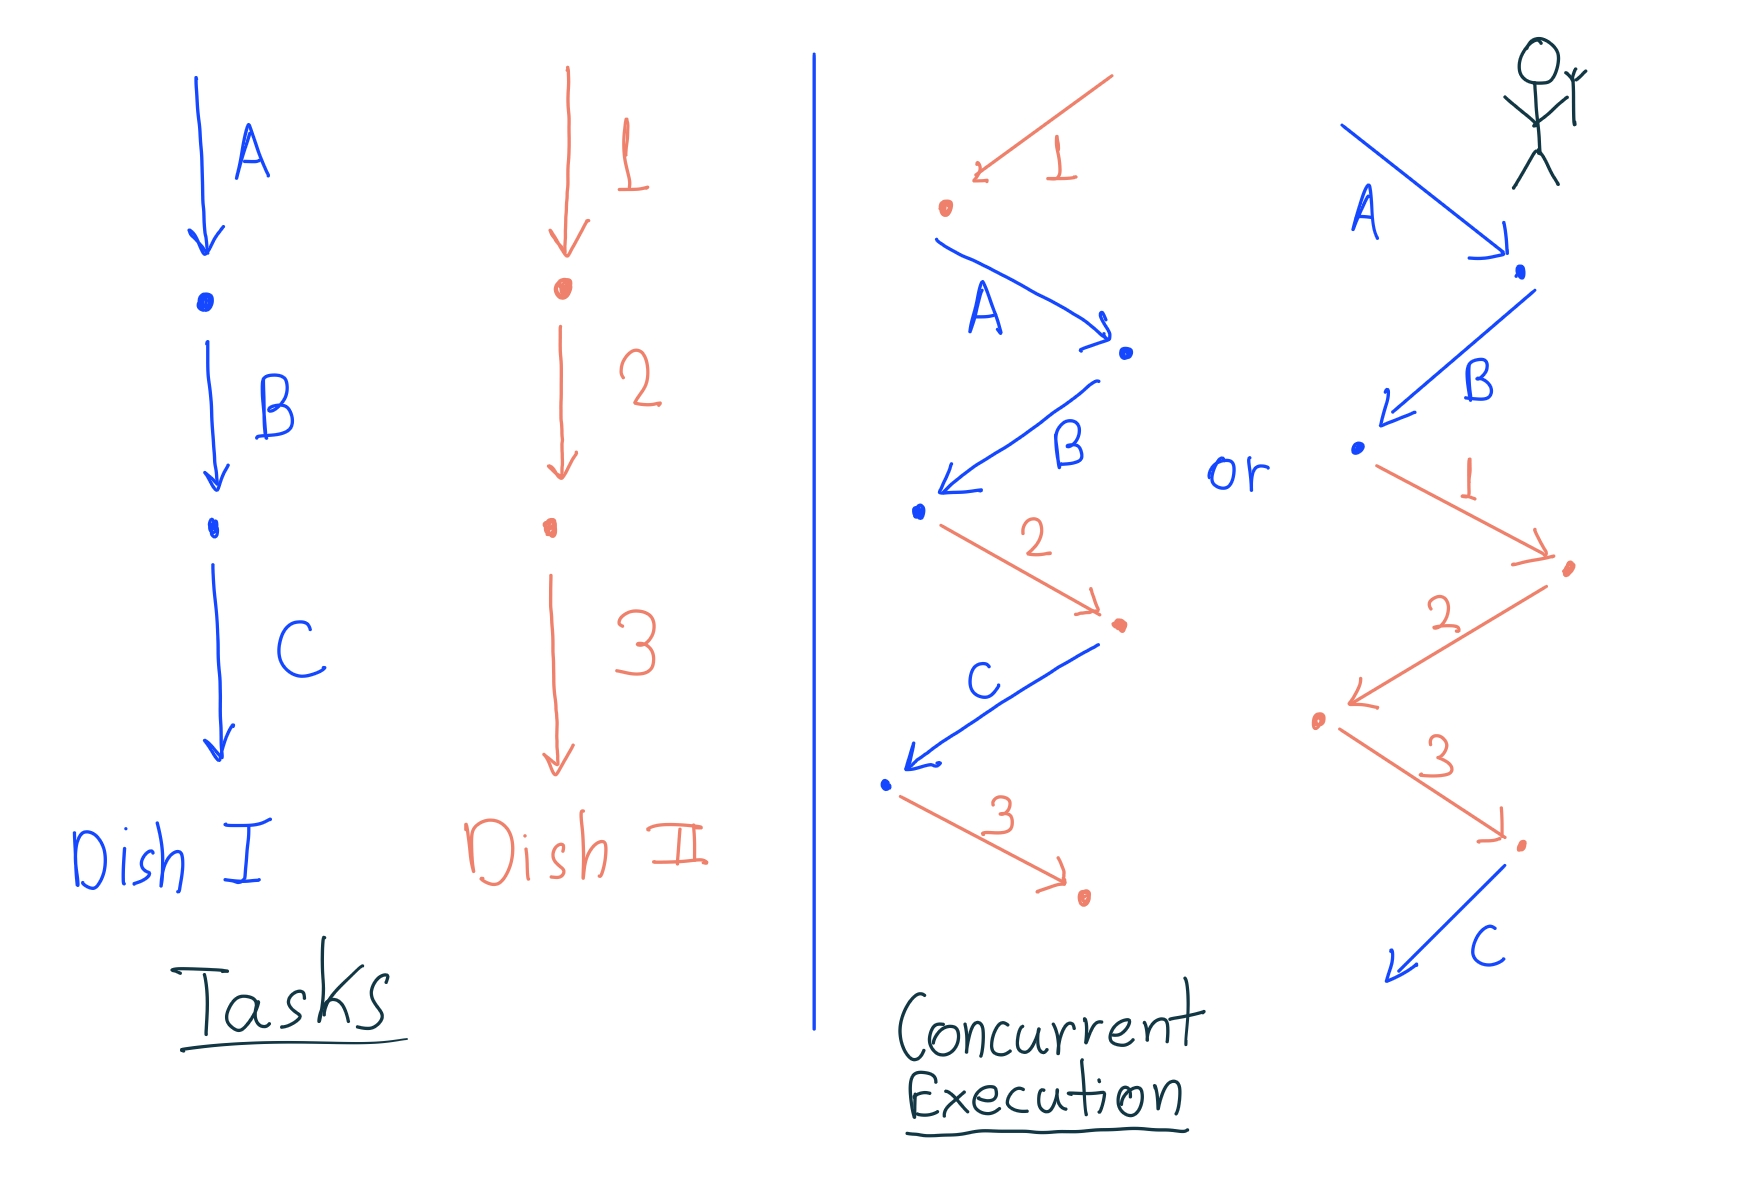 A
B
C
Dish I
1
2
3
Dish II
Tasks
1
A
B
2
C
3
or
A
B
1
2
3
C
Concurrent
Execution